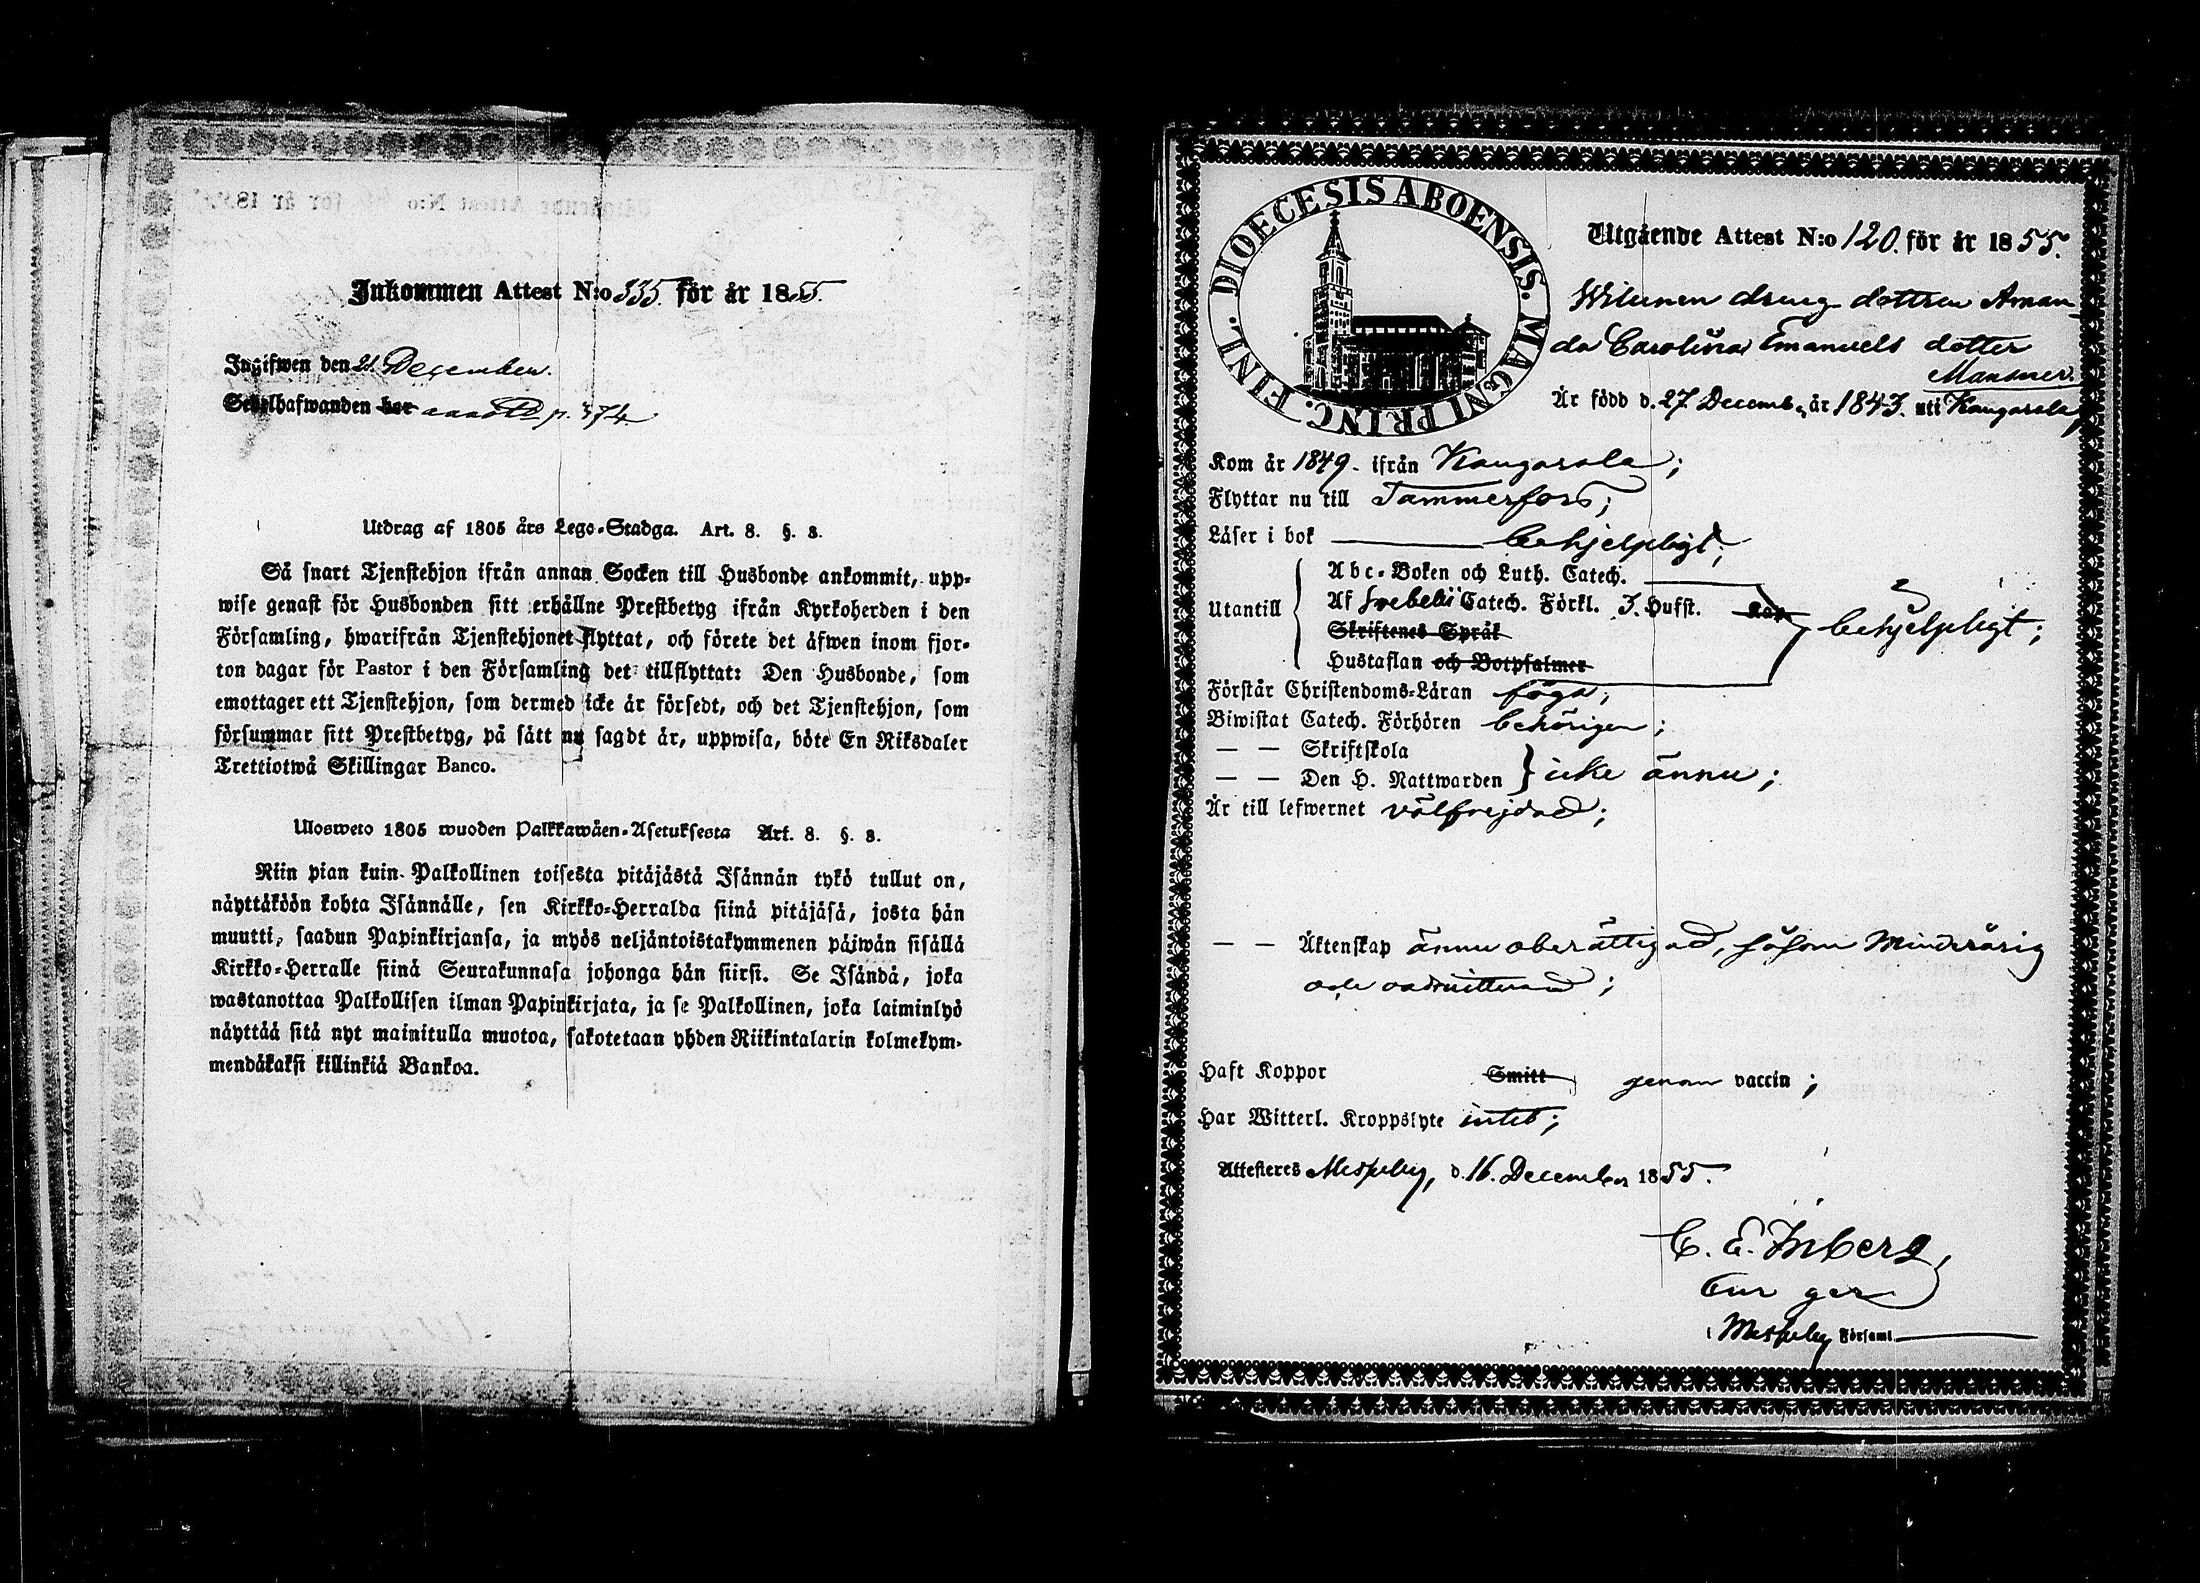 Inkommen Attest N:o 335. för år 1855.
Ingifwen den 21. December.
Sedelhafwanden bor annotd p. 374.
Utdrag af 1805 års Lego-Stadga. Art. 8. §. 3.
Så snart Tjenstehjon ifrån annan Socken till Husbonde ankommit, upp-
wise genast för Husbonden sitt erhållne Prestbetyg ifrån Kyrkoherden i den
Församling, hwarifrån Tjenstehjonet flyttat, och förete det äfwen inom fjor-
ton dagar för Pastor i den Församling det tillflyttat: Den Husbonde, som
emottager ett Tjenstehjon, som dermed icke är försedt, och det Tjenstehjon, som
försummar sitt Prestbetyg, på sätt nu sagdt är, uppwisa, böte En Riksdaler
Trettiotwå Skillingar Banco.
Ulosweto 1805 wuoden Palkkawäen-Asetuksesta Art. 8. §. 3.
Niin pian kuin Palkollinen toisesta pitäjästä Isännän tykö tullut on,
näyttäköön kohta Isännälle, sen Kirkko-Herralda siinä pitäjäsä, josta hän
muutti, saadun Papinkirjansa, ja myös neljäntoistakymmenen päiwän sisällä
Kirkko-Herralle siinä Seurakunnasa johonga hän siirsi. Se Isändä, joka
wastanottaa Palkollisen ilman Papinkirjata, ja se Palkollinen, joka laiminlyö
näyttää sitä nyt mainitulla muotoa, sakotetaan yhden Riikintalarin kolmekym-
mendäkaksi killinkiä Bankoa.
DIOECESIS ABOENSIS. MAGNI PRINC. FINL.
Utgående Attest N:o 120. för år 1855.
dreng dottren Aman-
da Carolina Emanuels dotter
Är född d. 27 Decemb. år 1843. uti Kangasala,
Kom år 1849. ifrån Kangasala;
Flyttar nu till Tammerfors;
Läser i bok behjelpligt;
Utantill
Abc-Boken och Luth. Catech.
Af Svebelii Catech. Förkl. 3. Hufst. Kap.
behjelpligt;
Skriftenes Språk
Hustaflan och Botpsalmer
Förstår Christendoms-Läran föga;
Biwistat Catech. Förhören behörigen;
— — Skriftskola
— — Den H. Nattwarden icke ännu;
Är till lefwernet välfrejdad;
— — Äktenskap ännu oberättigad, såsom Minderårig
och oadmitterad;
Haft Koppor Smitt genom vaccin;
Har Witterl. Kroppslyte intet;
Attesteres Messuby, d. 16. December 1855.
C. E. Inberg,
i Messuby Församl.